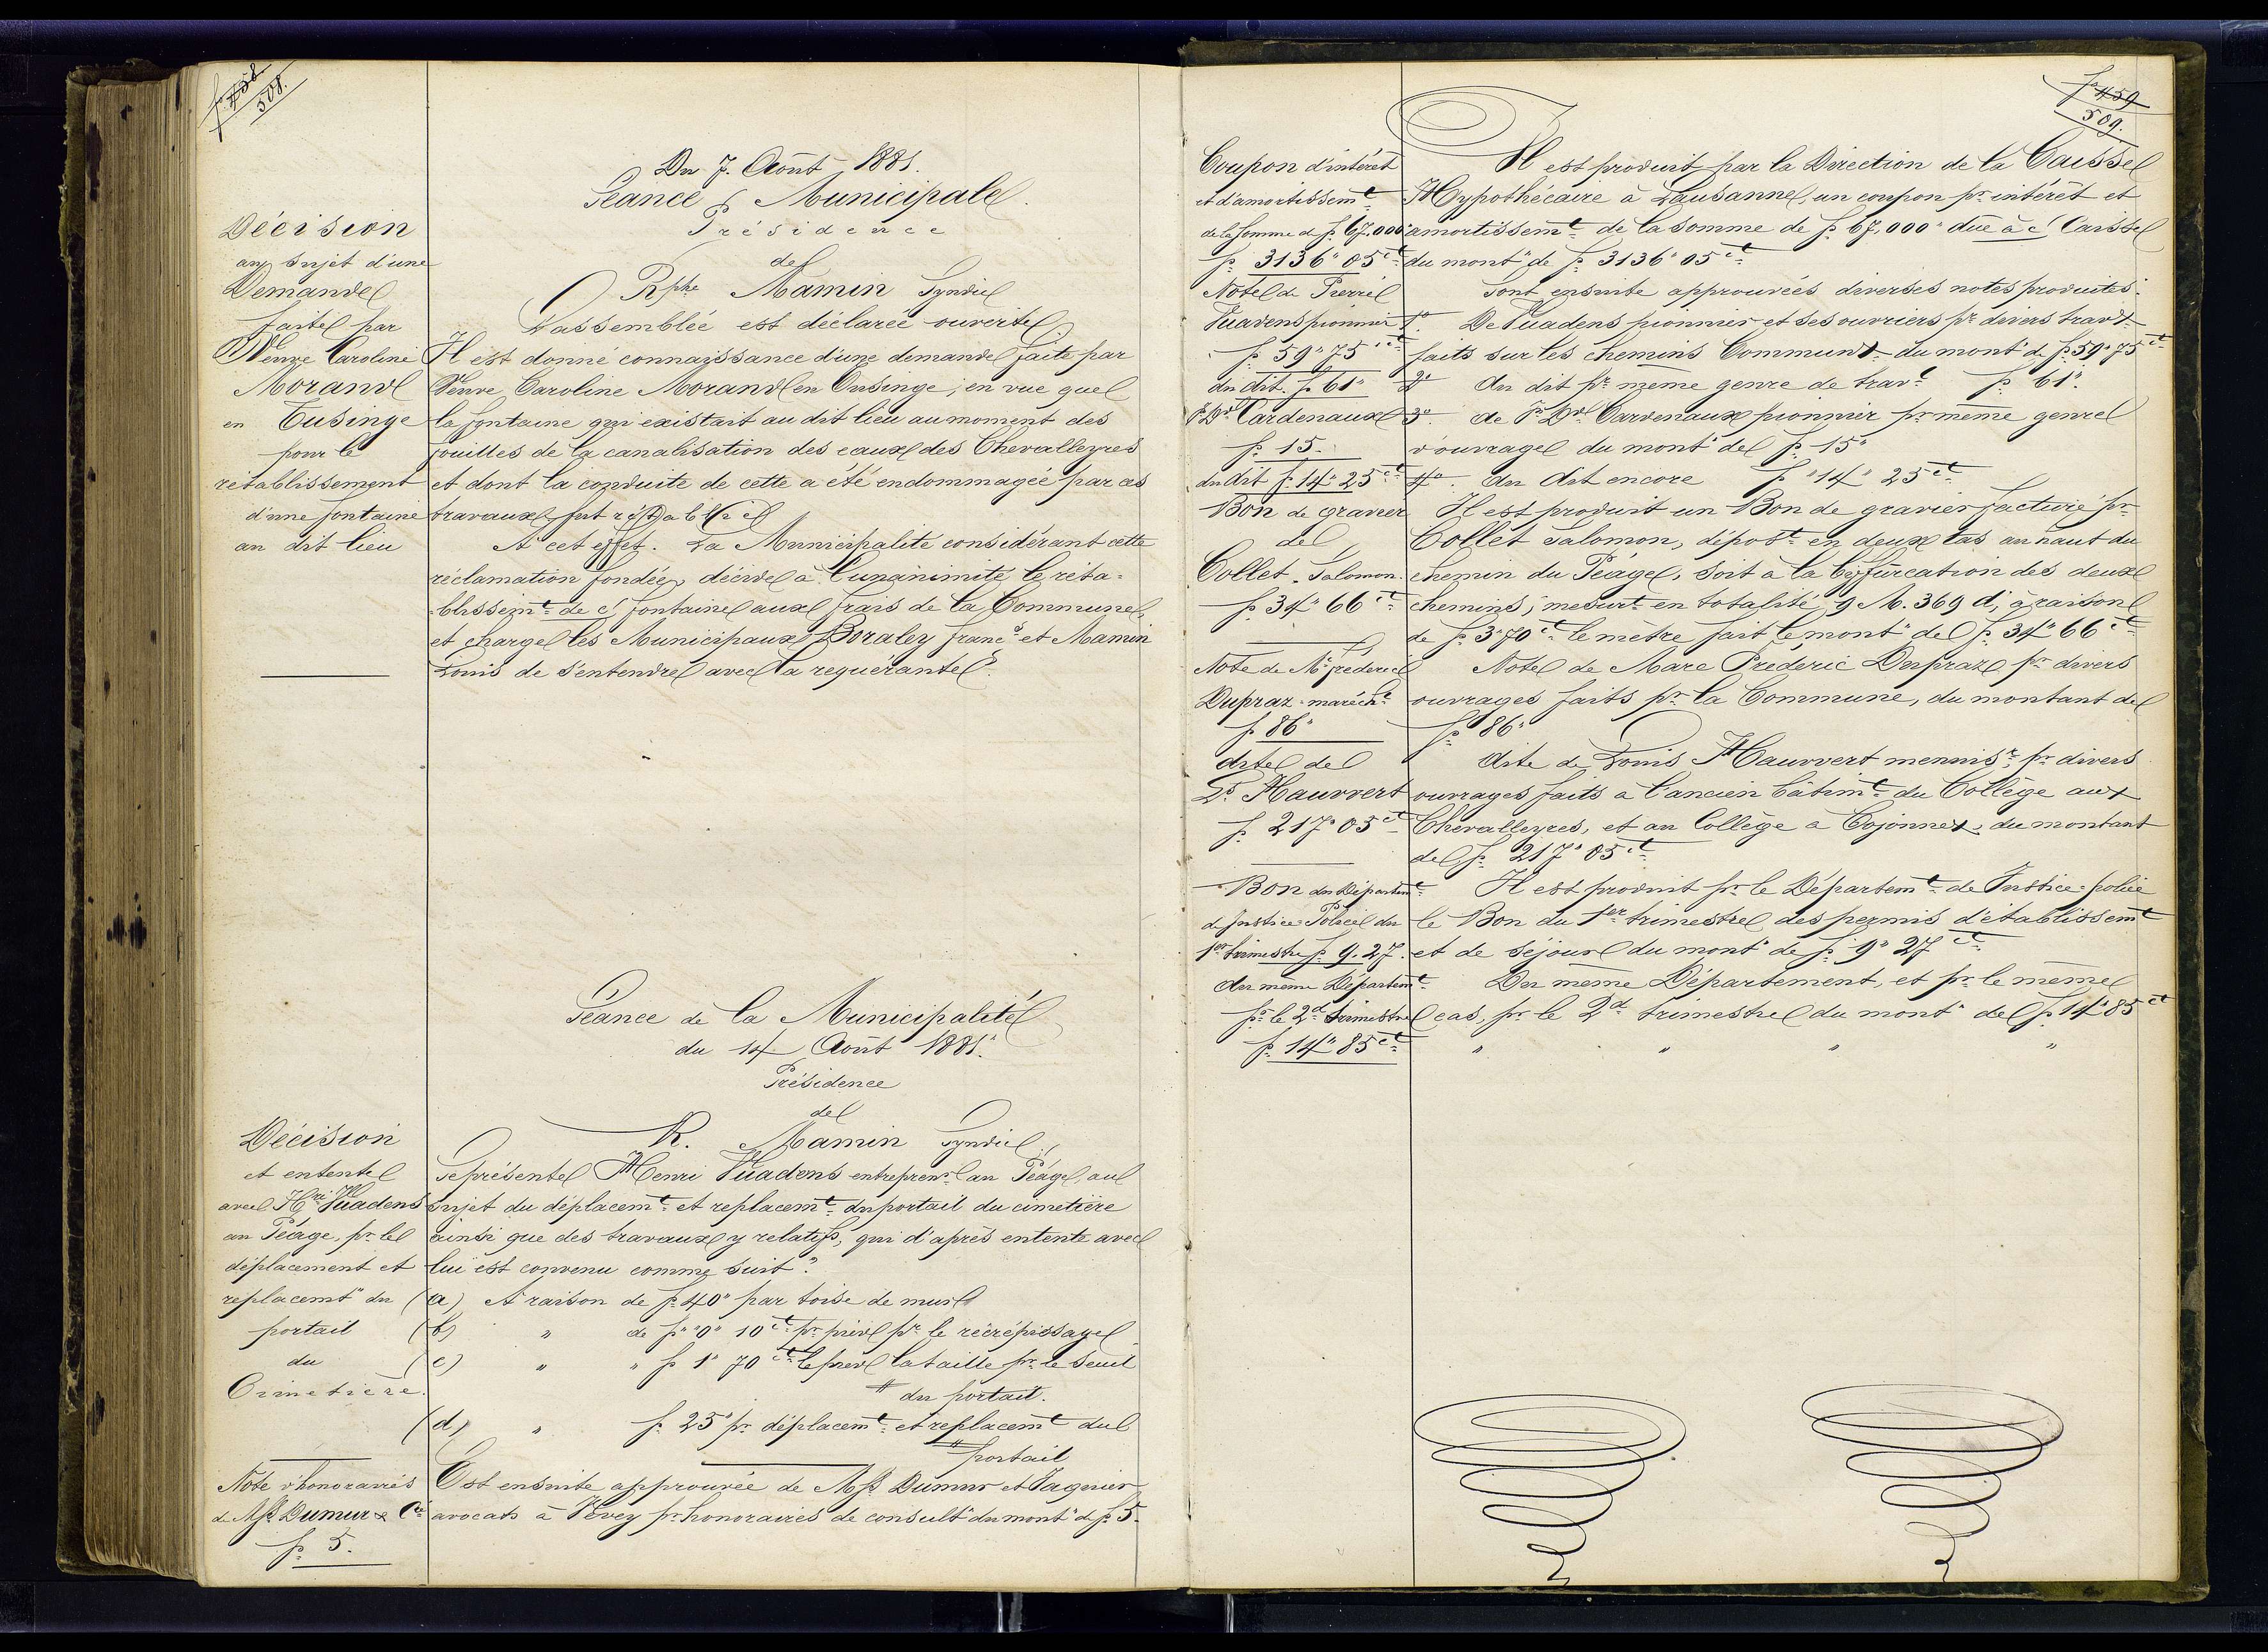 fo 458
508.
Du 7. Août 1881.
Séance Municipale.
Présidence
de
Rphe Mamin Syndic
L'assemblée est déclarée ouverte.
Décision
au sujet d'une
Demande
faite par
Veuve Caroline
Morand
en Tusinge
pour le
rétablissement
d'une fontaine
au dit lieu
Il est donné connaissance d'une demande faite par
Veuve Caroline Morand en Tusinge, en vue que
la fontaine qui existait au dit lieu au moment des
fouilles de la canalisation des eaux des Chevalleyres
et dont la conduite de cette a été endommagée par ces
travaux, fut rétablie
A cet effet. La Municipalité considérant cette
réclamation fondée, décide à l'unanimité le réta=
=blissemt de ct fontaine aux frais de la Commune,
et charge les Municipaux Boraley Francs et Mamin
Louis de s'entendre avec la requérante.
Séance de la Municipalité
du 14 Août 1881.
Présidence
de
R. Mamin Syndic
Décision
et entente
avec Hri Vuadens
au Péage, pr le
déplacement et
replacemt du
portail
du
Cimetière.
Se présente Henri Vuadens entreprenr au Péage, au
sujet du déplacemt et replacemt du portail du cimetière
ainsi que des travaux y relatifs, qui d'après entente avec
lui est convenu comme suit:
(a) A raison de fr 40" par toise de mur
(b) " de fr "0" 10 ct pr pied pr le récrépissage
(c) " " fr 1" 70 ct le pied la taille pr le seuil
" du portail.
(d) " fr 25" pr déplacemt et replacemt du
" portail
Note d'honoraires
de Mrs Dumur & Cie
fr 5.
Est ensuite approuvée de Mrs Dumur et Jaquier
avocats à Vevey pr honoraires de consultn du mont d fr 5.
fo 459
509.
Coupon d'intérêt
et d'amortissemt
de la somme d fr 67.000
fr 3136" 05 ct
Il est produit par la Direction de la Caisse
Hypothécaire à Lausanne, un coupon pr intérêt et
amortissemt de la somme de fr 67,000" due à ct Caisse
du mont de fr 3136" 05 ct
Note de Pierre
Vuadens pionnier
fr 59" 75 ct
du dit. fr 61"
Sont ensuite approuvées diverses notes produites:
1o De Vuadens pionnier et ses ouvriers pr divers travx
faits sur les chemins Communx du mont d fr 59" 75 ct
2o du dit pr même genre de travt fr 61".
Dd Cardenaux
fr 15.
du dit fr 14" 25 ct
3o de Dd Cardenaux pionnier pr même genre
d'ouvrage du mont de fr 15"
4o du dit encore fr "14" 25 ct
Bon de gravier
de
Collet Salomon.
fr 34" 66 ct
Il est produit un Bon de gravier facturé pr
Collet Salomon, dépost en deux tas au haut du
chemin du Péage, soit à la biffurcation des deux
chemins; mesurt en totalité 9 M. 369 d, à raison
de fr 3"70 ct le mètre fait le mont de fr 34" 66 ct
Note de Mc frederic
Dupraz maréchl
fr 86"
Note de Marc Frederic Dupraz pr divers
ouvrages faits pr la Commune, du montant de
fr 86"
dite de
Ls Hauvert
fr 217" 05 ct
dite de Louis Hauvert menuisr pr divers
ouvrages faits à l'ancien bâtimt du Collège aux
Chevalleyres, et au Collège à Cojonnex, du montant
de fr 217" 05 ct
Bon du Départemt
de Justice=Police du
1er trimestre fr 9.27.
Il est produit pr le Départemt de Justice=police
le Bon du 1er trimestre des permis d'établissemt
et de séjour du mont de fr 9" 27 ct
du même Départemt
pr le 2d trimestre
fr 14" 85 ct
Du même Département, et pr le même
cas, pr le 2d trimestre du mont de fr 14" 85 ct
" " " "